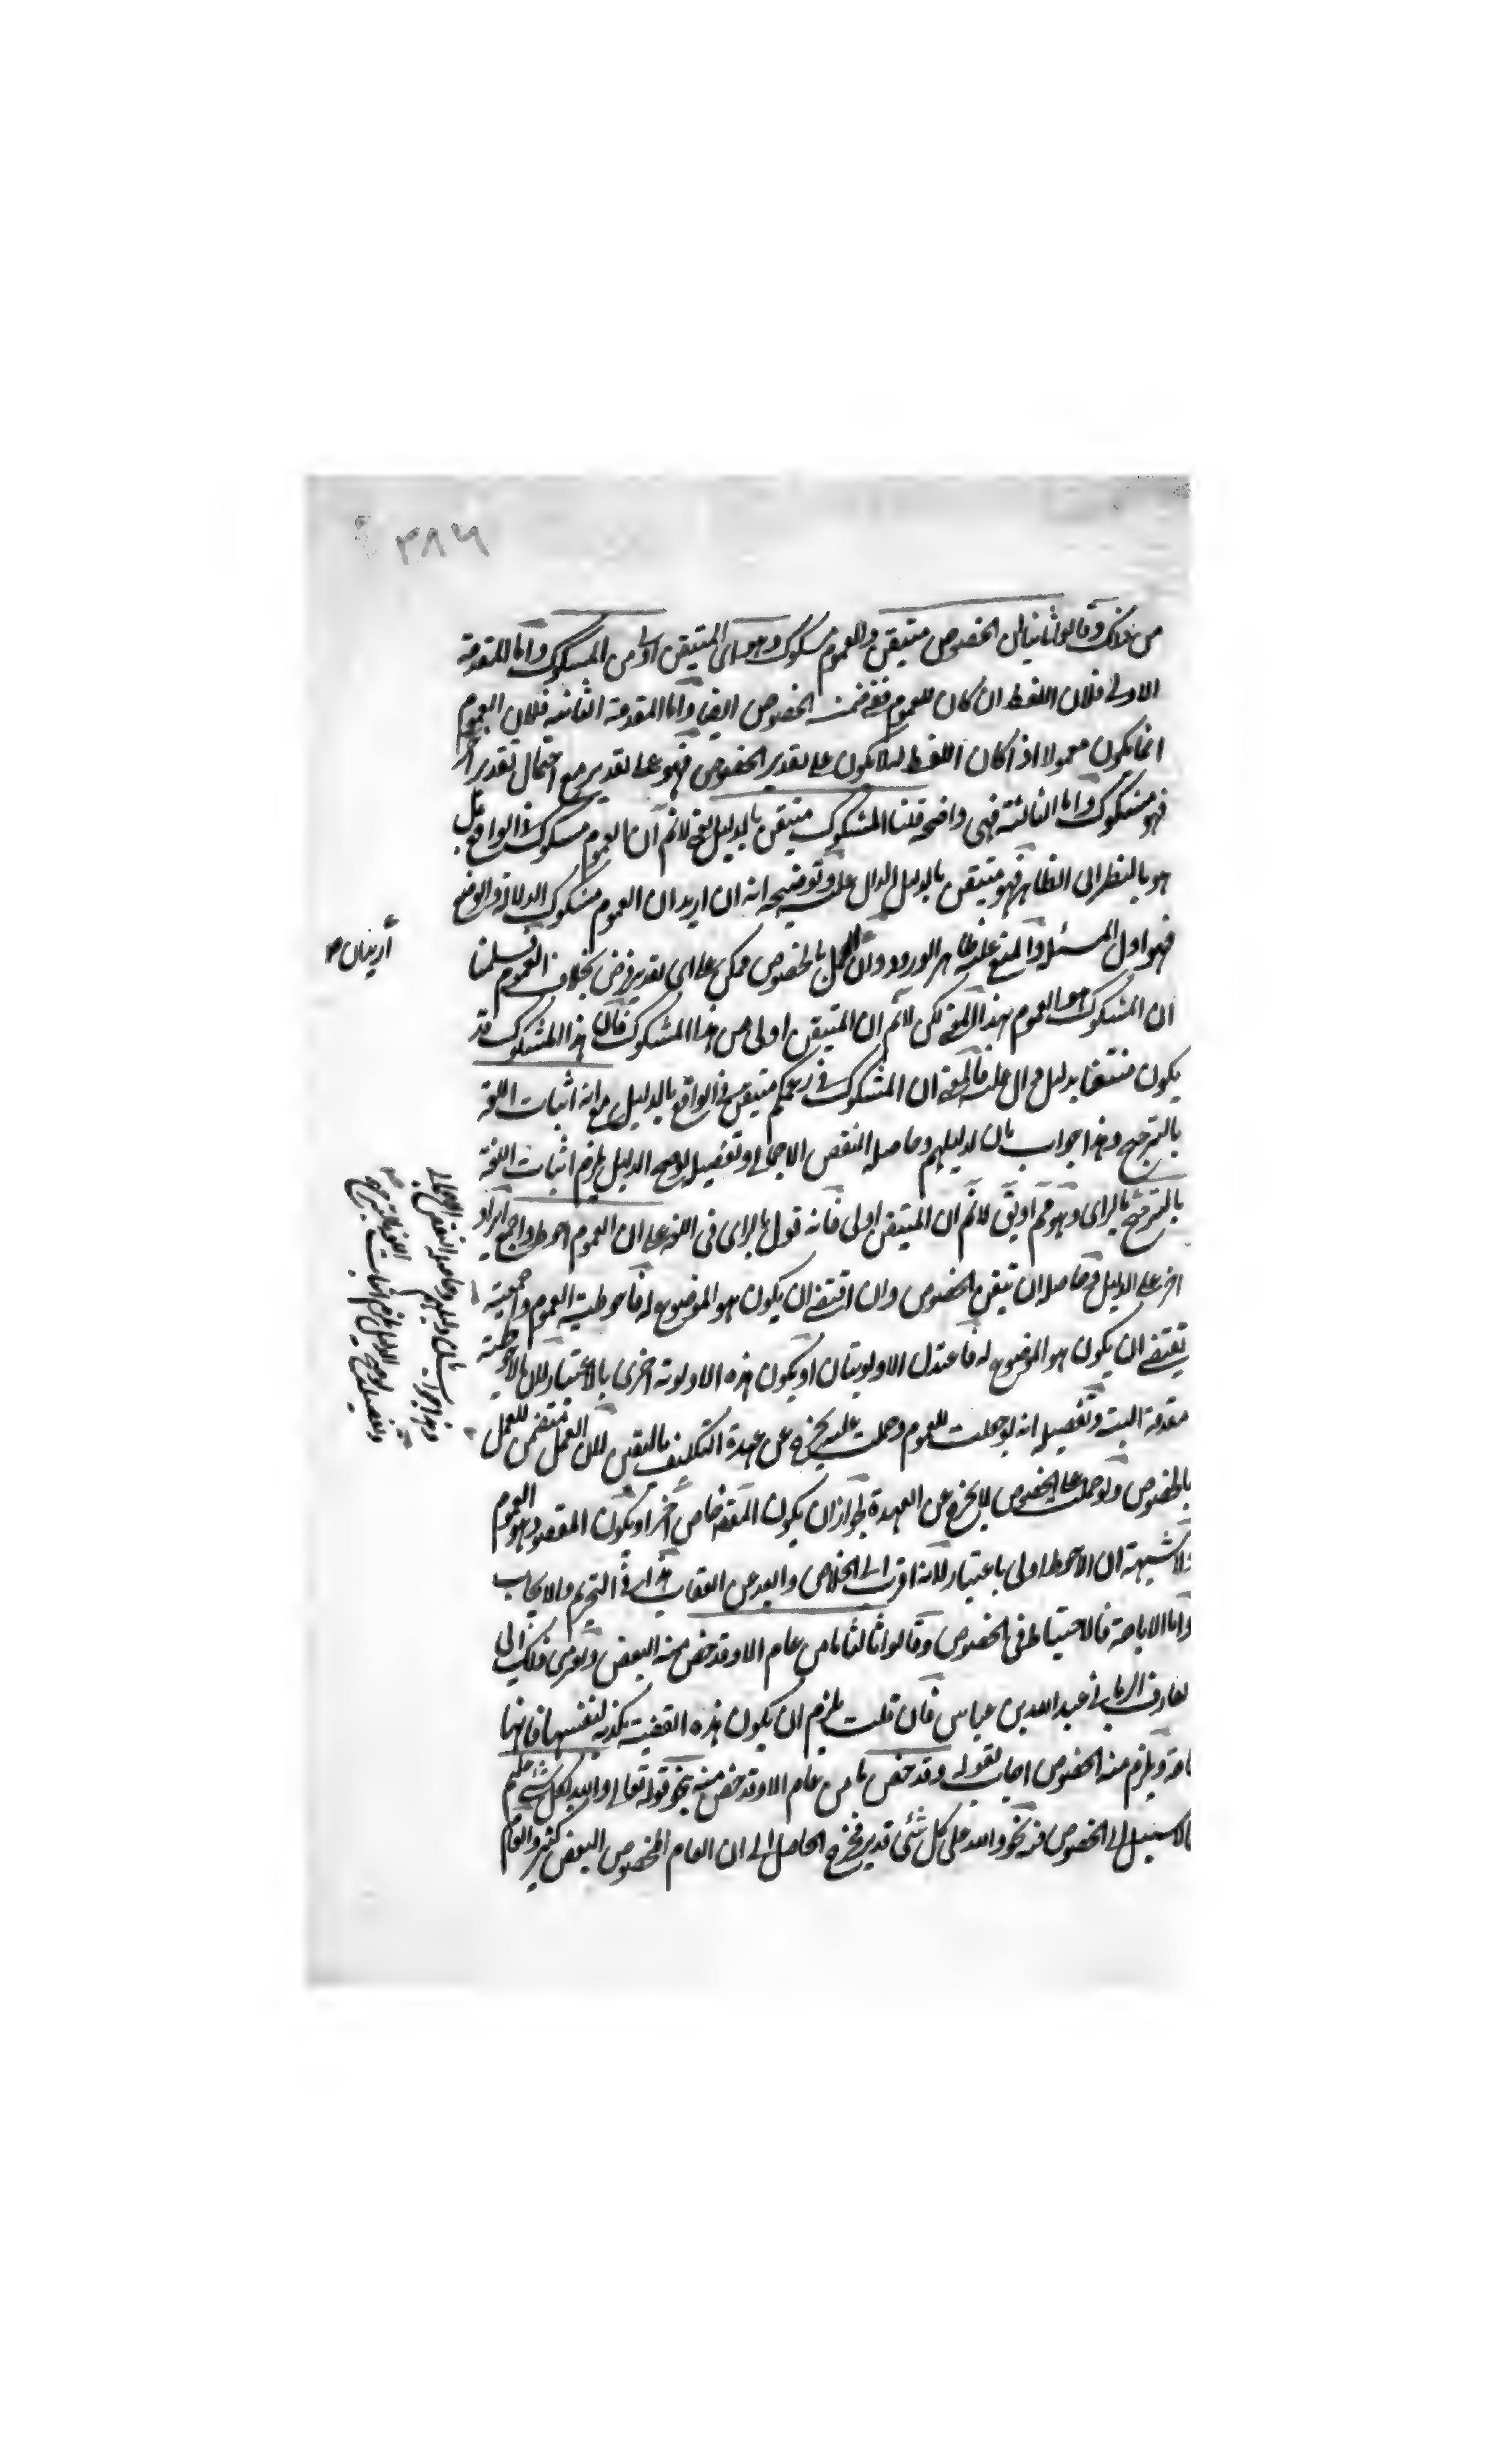 ٣٨٦
من ذلك وقالوا ثانيا ان الخصوص متيقن والعموم مشكوك وهو اى المتيقن اولى من المشكوك واما المقدمة
الاولى فلان اللفظ ان كان للعموم ففى ضمنه الخصوص ايضا واما المقدمة الثانية فلان العموم
انما يكون معمولا اذا كان اللفظ له لا يكون على تقدير الخصوص فهو على تقدير مع احتمال تقدير آخر
فهو مشكوك واما الثالثة فهى واضحة قلنا المشكوك متيقن بالدليل يعنى لانم ان العموم مشكوك فى الواقع بل
هو بالنظر الى الظاهر فهو متيقن بالدليل الدال عليه وتوضيحه انه ان اريد ان العموم مشكوك الدلالة والوضع
فهو اول المسئلة والمنع عليه ظاهر الورود وان الحمل بالخصوص ممكن على اى تقدير فرض بخلاف العموم فسلمنا
ان المشكوك هو العموم بهذا المعنى لكن لانم ان المتيقن اولى من هذا المشكوك فان هذا المشكوك قد
يكون متيقنا بدليل دال عليه فالمعنى ان المشكوك فى زعمكم متيقن فى الواقع بالدليل مع انه اثبات اللغة
بالترجيح وهذا جواب ثان لدليلهم وحاصله النقض الاجمالى وتفصيله لو صح الدليل يلزم اثبات اللغة
بالترجيح بالراى وهو مم او يق لانم ان المتيقن اولى فانه قول بالراى فى اللغة على ان العموم احوط واجمع ايراد
اخر على الدليل وحاصله ان تيقن الخصوص وان اقتضى ان يكون هو الموضوع له فاحوطية العموم واجمعيته
تقتضى ان يكون هو الموضوع له فاعتدل الاولويتان او يكون هذه الاولوية اخرى بالاعتبار لان الاحوطية
مقدمة البتة وتفصيله انه لو جعلت للعموم وحملت عليه يخرج عن عهدة التكليف باليقين لان العمل متضمن للعمل
بالخصوص ولو حملت على الخصوص لا يخرج عن العهدة لجواز ان يكون المقصود خاص آخر او يكون المقصود هو العموم
ولا شبهة ان الاحوط اولى باعتبار لانه اقرب الى الخلاص وابعد عن العقاب هذا فى التحريم والايجاب
واما الاباحة فالاحتياط فى الخصوص وقالوا ثالثا ما من عام الا وقد خص منه البعض وتعزى ذلك الى
العارف الربانى عبد الله بن عباس فان قلت يلزم ان يكون هذه القضية مكذبة لنفسها فانها
عامة ويلزم منه الخصوص اجاب بقوله وقد خص ما من عام الا وقد خص منه بنحو قوله تعالى والله بكل شئ عليم
لا سبيل الى الخصوص فيه نحو والله على كل شئ قدير فخرج الحاصل الى ان العام المخصوص البعض كثير والعام
اريد ان
وهذا جواب ثان لدليلهم وحاصله النقض الاجمالى
وتفصيله لو صح الدليل يلزم اثبات اللغة بالترجيح